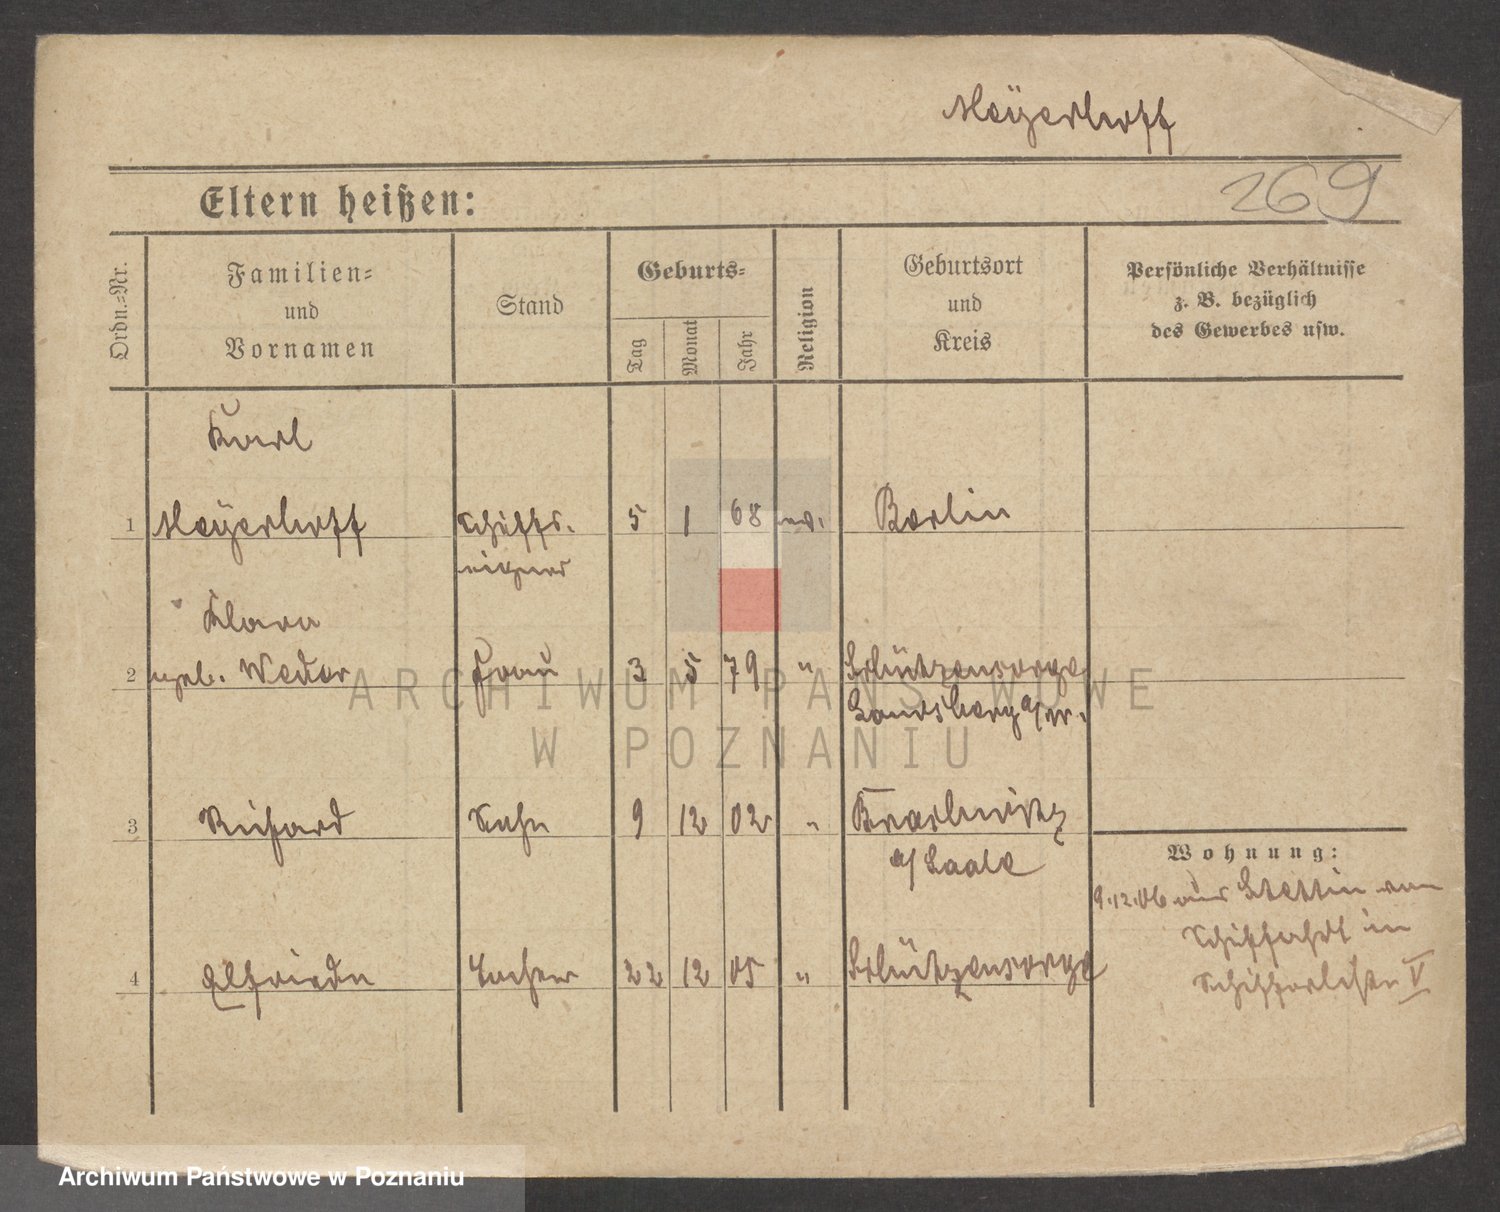 Meÿerhoff
269
Eltern heißen:
Ordn.-Nr.
Familien-
und
Vornamen
Stand
Geburts-
Tag
Monat
Jahr
Religion
Geburtsort
und
Kreis
Persönliche Verhältnisse
z. B. bezüglich
des Gewerbes usw.
Karl
1 Meÿerhoff Schiffs- 5 1 68 ev. Berlin
eigner
Klara
2 geb. Weder Frau 3 5 79 " Schützensorge
Landsberg a/W.
3 Richard Sohn 9 12 02 "
a/Saale
Wohnung:
9.12.06 aus Stettin von
Schiffahrt in
4 Elfriede Tochter 22 12 05 " Schützensorge
Schifferliste V
ARCHIWUM PAŃSTWOWE
W POZNANIU
Archiwum Państwowe w Poznaniu